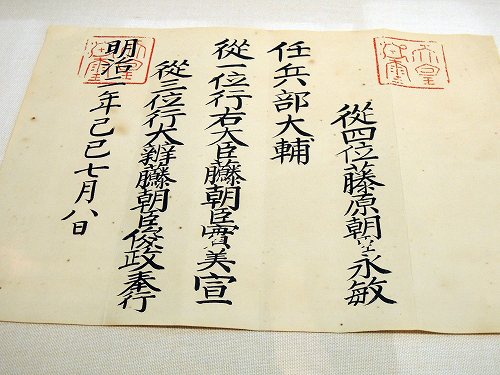 從四位藤原朝臣永敏
任兵部大輔
從一位行右大臣藤原朝臣實美宣
從三位行大辨藤原朝臣俊政奉行
明治二年己巳七月八日
天皇御璽
天皇御璽